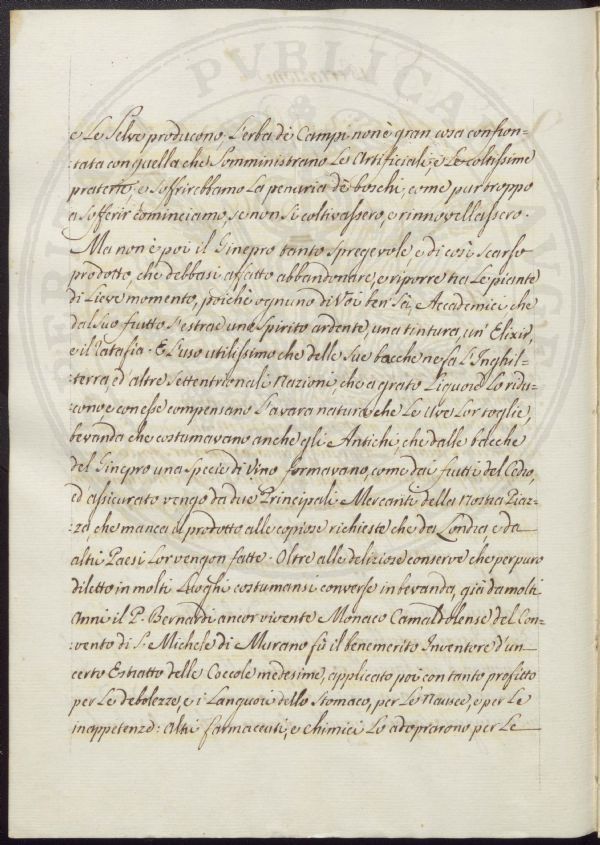 e Le Selve producono, L'erba de Campi non è gran cosa confron-
-tata con quella che Somministrano Le Artificiale, e Le coltissime
praterie, e soffrirebbamo La penuria de boschi, come pur troppo
a sofferir cominciamo, se non Si coltivassero, e rinnovellassero.
Ma non è poi il Ginepro tanto spregevole e di così scarso
prodotto, che debbasi affatto abbandonare, e riporre tra Le piante
di Lieve momento, poichè ognuno di Voi ben Sà, e Accademici che
dal suo frutto s'estrae uno Spirito ardente, una tintura, un' Elixir,
e il Ratafia. E l'uso utilissimo che delle Sue bacche ne fa L'Inghil-
-terra, ed' altre Settentrionali Nazioni, che a grato Liquore Lo ridu-
cono, e con esse compensano L'avara natura, che Le Uve Lor toglie,
bevanda che costumavano anche gli Antichi, che dalle bacche
del Ginepro una specie di Vino formavano, come dai frutti del Cedro,
ed' assicurato vengo da due Principali Mercanti della Nostra Piaz-
-za, che manca il prodotto alle copiose richieste che da Londra, e da
altri Paesi Lor vengon fatte. Oltre alle deliziose conserve che per puro
diletto in molti Luoghi costumansi converse in bevanda, già da molti
Anni il P. Bernardi ancor vivente Monaco Camaldolense del Con-
vento di S. Michele di Murano fù il benemerito Inventore d'un
certo Estratto delle Coccole medesime, applicato poi con tanto profitto
per Le debolezze, e i Languori dello Stomaco, per Le Nausee, e per Le
inappetenze: Altri farmaceuti, e Chimici Lo adoprarono per Le
PVBLICA